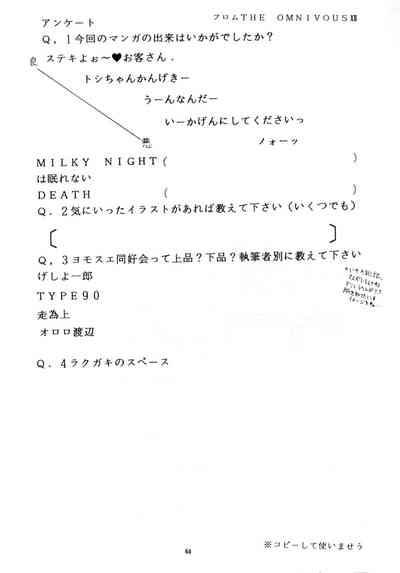 アンケート
フロムTHE OMNIVOUSⅫ
Q．1今回のマンガの出来はいかがでしたか？
良
ステキよぉ～♥お客さん．
トシちゃんかんげきー
うーんなんだー
いーかげんにしてくださいっ
悪
ノォーッ
MILKY NIGHT（ ）
は眠れない
DEATH （ ）
Q．2気にいったイラストがあれば教えて下さい（いくつでも）
〔 〕
Q．3ヨモスエ同好会って上品？下品？執筆者別に教えて下さい
げしよ一郎
TYPE90
走為上
オロロ渡辺
Q．4ラクガキのスペース
※コピーして使いませう